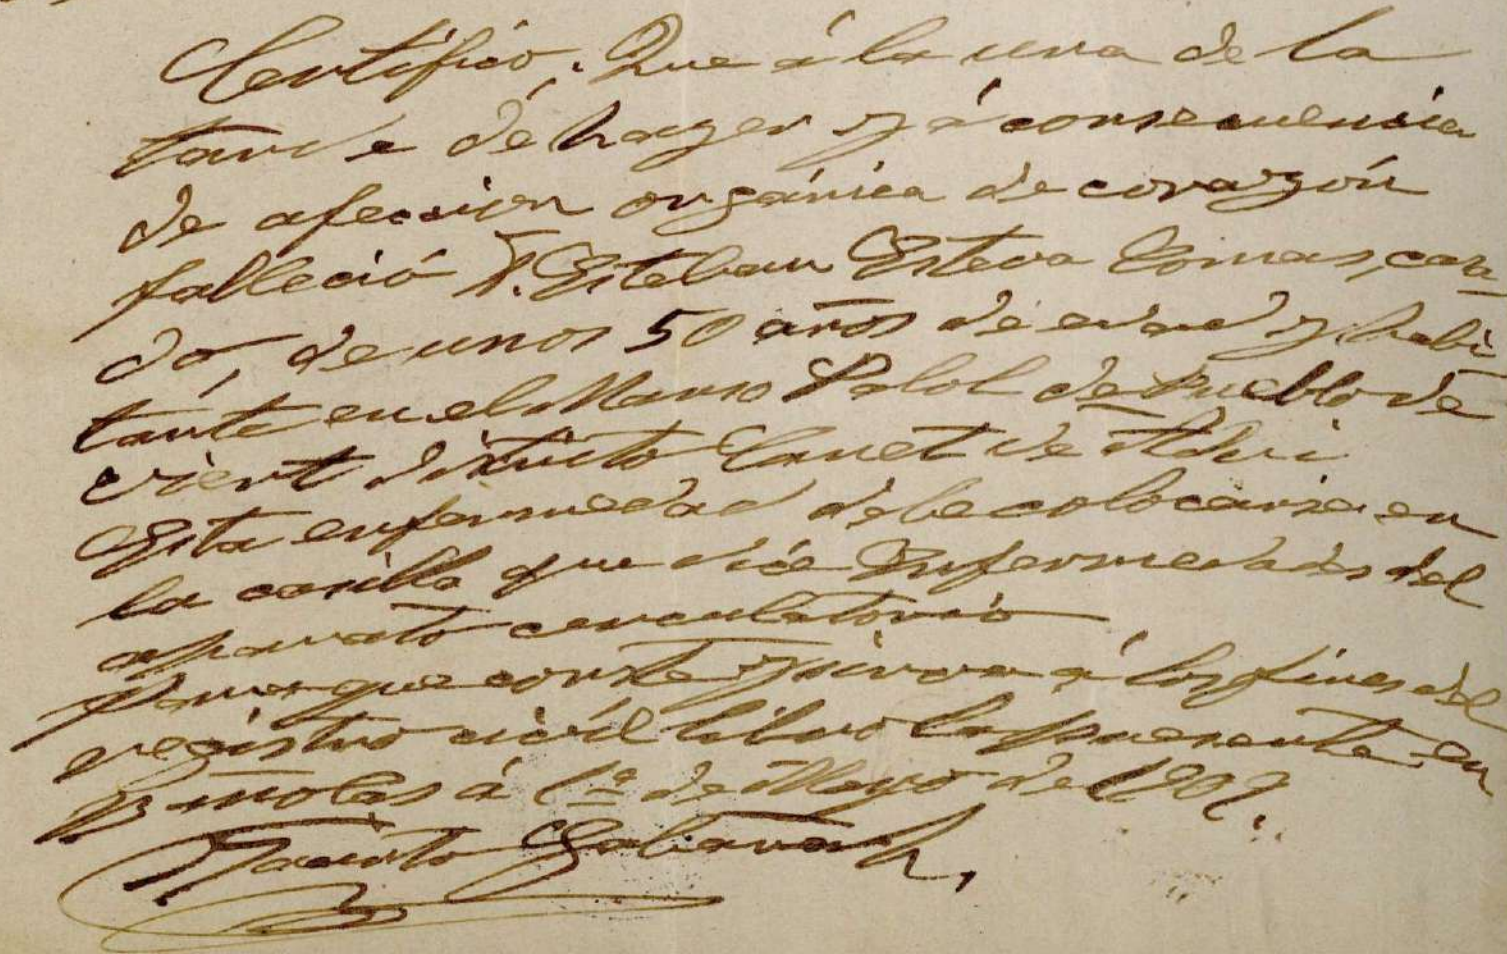 Certifico: Que á la una de la
tarde de hayer y á consecuencia
de afeccion orgánica de corazón
falleció D. Esteban Esteva Comas, casa-
do, de unos 50 años de edad y habi-
tante en el Manso Palol de Pueblo de
distrito Canet de Adri
Esta enfermedad debe colocarse en
la casilla que dice Enfermedades del
aparato circulatorio
Para que conste y sirva á los fines del
registro civil libro la presente en
Bañolas á 1º de Mayo de 1902.
Jacinto